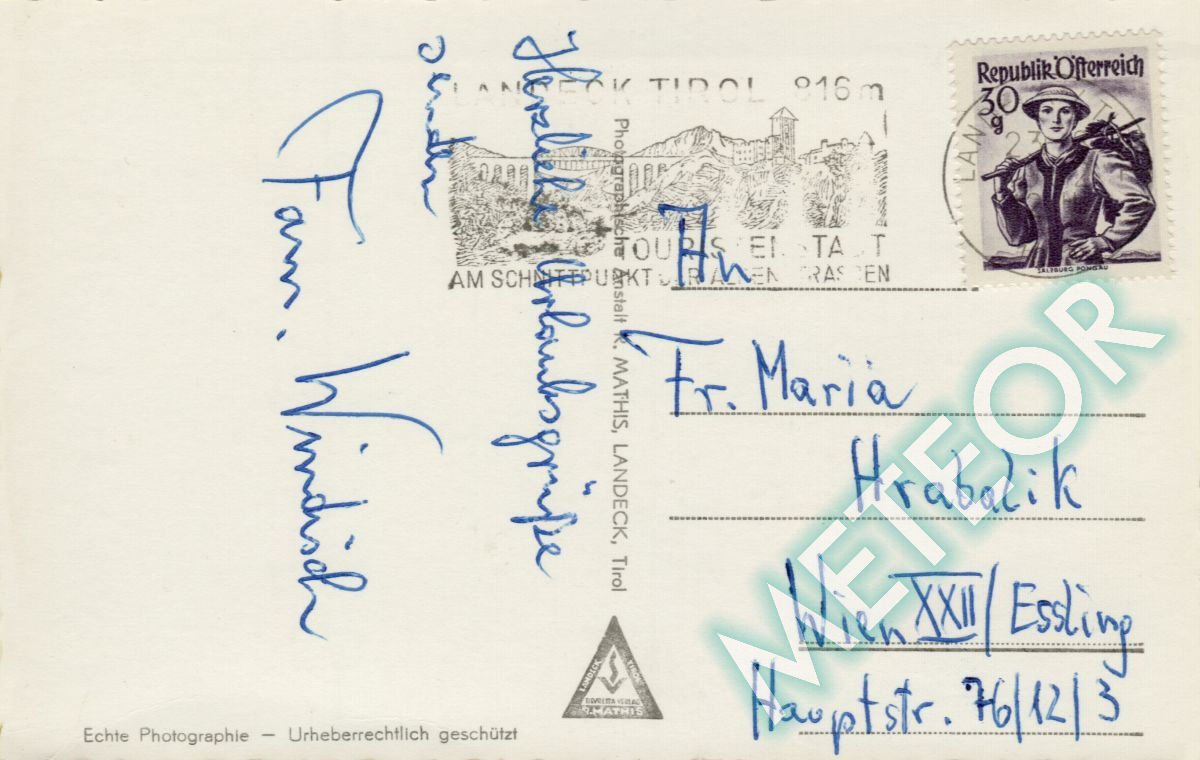 Herzliche Urlaubsgrüße
senden
Fam. Windisch
LANDECK TIROL 816 m
TOURISTENSTADT
AM SCHNITTPUNKT DER ALPENSTRASSEN
Photographische Anstalt R. MATHIS, LANDECK, Tirol
Republik Österreich
30 g
SALZBURG PONGAU
LAN
An
Fr. Maria
Hrabalik
Wien XXII / Essling
Hauptstr. 76/12/3
LANDECK TIROL
SILVRETTA VERLAG
R. MATHIS
Echte Photographie — Urheberrechtlich geschützt
METEOR